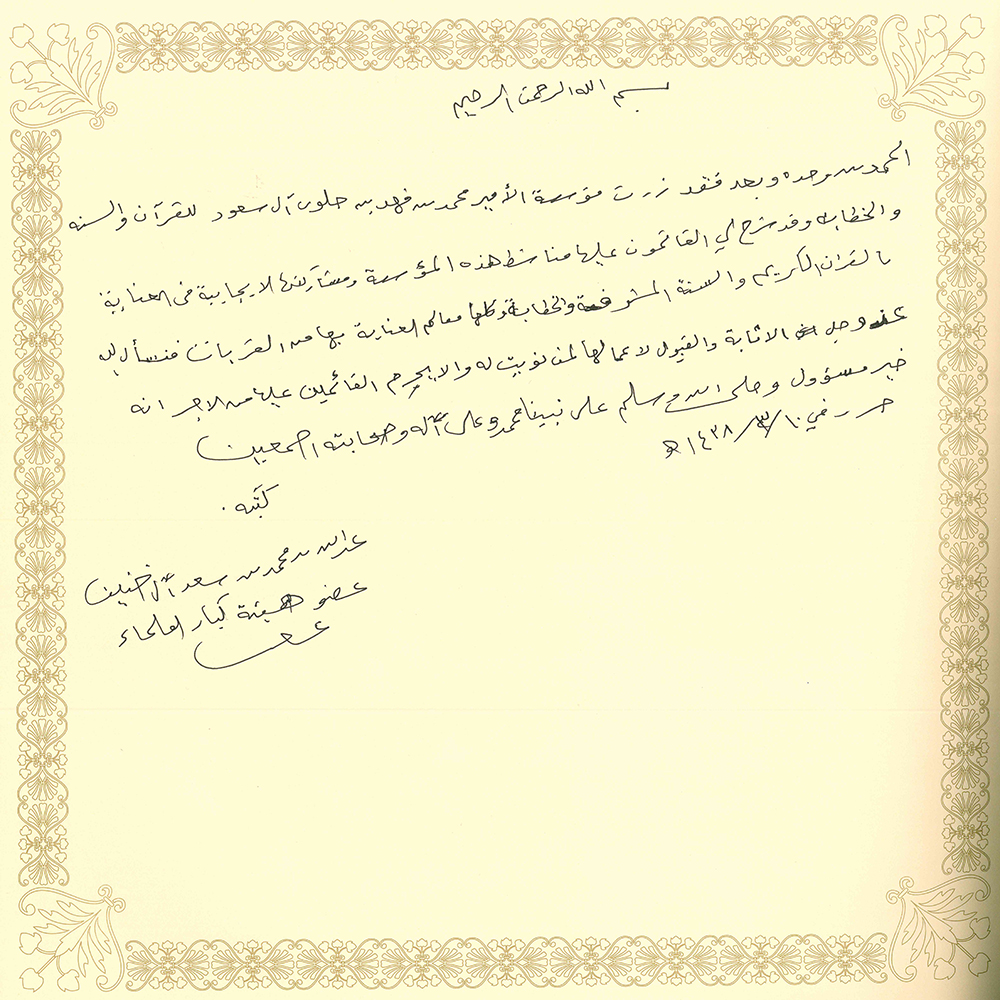 بسم الله الرحمن الرحيم
الحمد لله وحده وبعد فقد زرت مؤسسة الأمير محمد بن فهد بن جلوي آل سعود للقرآن والسنه
والخطابه وقد شرح لي القائمون عليها مناشط هذه المؤسسة ومشاركتها الايجابية في العناية
بالقرآن الكريم والسنة المشرفة والخطابة وكلها معالم العناية بها من القربات فنسأل الله
عز وجل الاثابة والقبول لاعمالها لمن نويت له والا يحرم القائمين عليها من الاجر انه
خير مسؤول وصلى الله وسلم على نبينا محمد وعلى آله وصحابته اجمعين
حرر في ١٤٣٨/٣/١٠ هـ
كتبه .
عبدالله بن محمد بن سعد آل خنين
عضو هيئة كبار العلماء